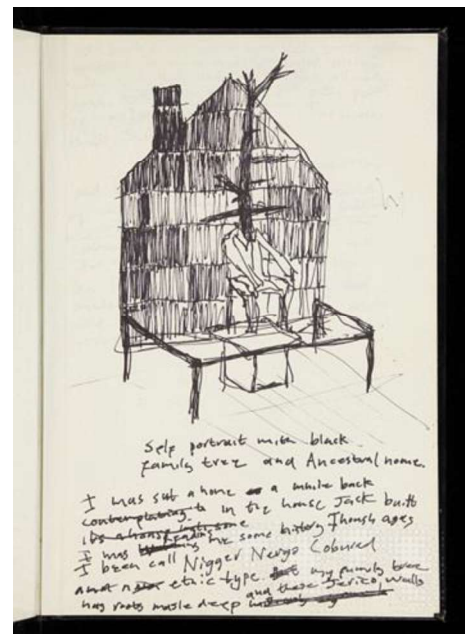 Self portrait with black
family tree and Ancestral home.
I was sat a home a while back
contemplating in the house Jack built
its a house
I was reading me some history Though ages
I been call Nigger Negro Coloured
and ethic type my family tree
has roots mile deep and these Jerico walls